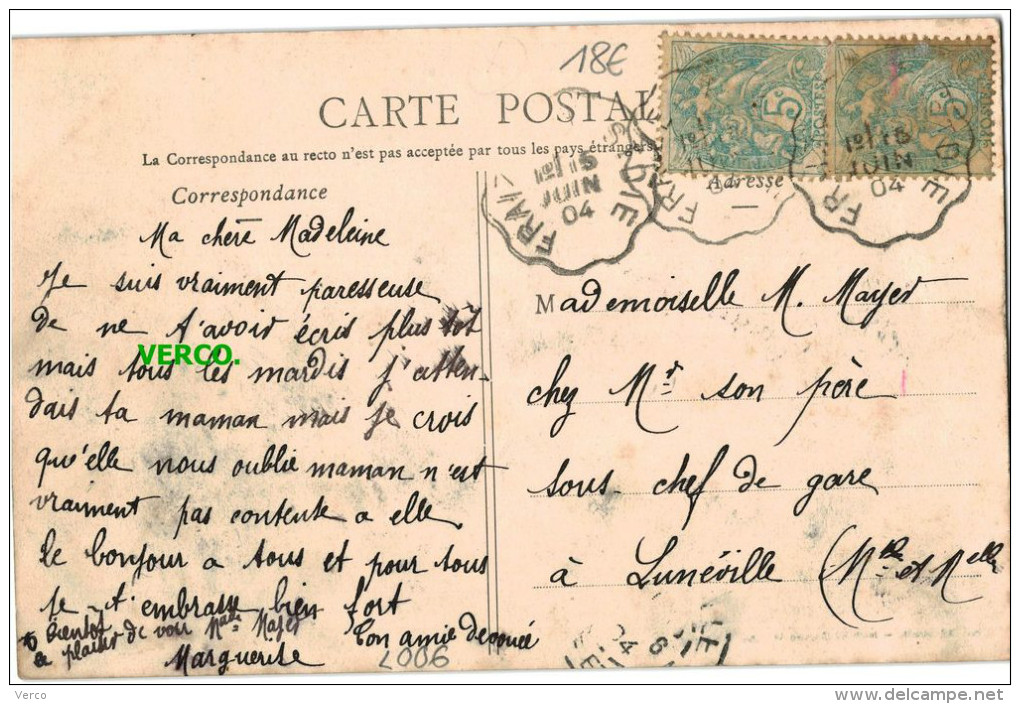 18€
CARTE POSTAL
La Correspondance au recto n'est pas acceptée par tous les pays étrangers
Correspondance
Adresse
5c POSTES
5c
15
JUIN
04
Ma chère Madeleine
Je suis vraiment paresseuse
de ne t'avoir écris plus tôt
mais tous les mardis j'atten-
dais ta maman mais je crois
qu'elle nous oublie maman n'est
vraiment pas contente a elle
le bonjour a tous et pour tous
je t'embrasse bien fort
Ton amie dévouée
Marguerite
a bientôt
le plaisir de voir Made Mayer
VERCO.
Mademoiselle M. Mayer
chez Mr son père
sous chef de gare
à Lunéville (Mthe et Melle
2006
04
Verco
www.delcampe.net